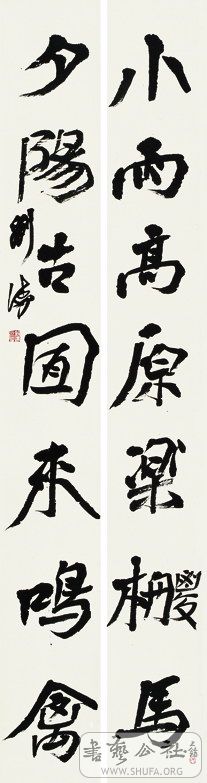 小雨高原樂柵馬
夕陽古囿來鳴禽
劉濤
書藝公社
WWW.SHUFA.ORG